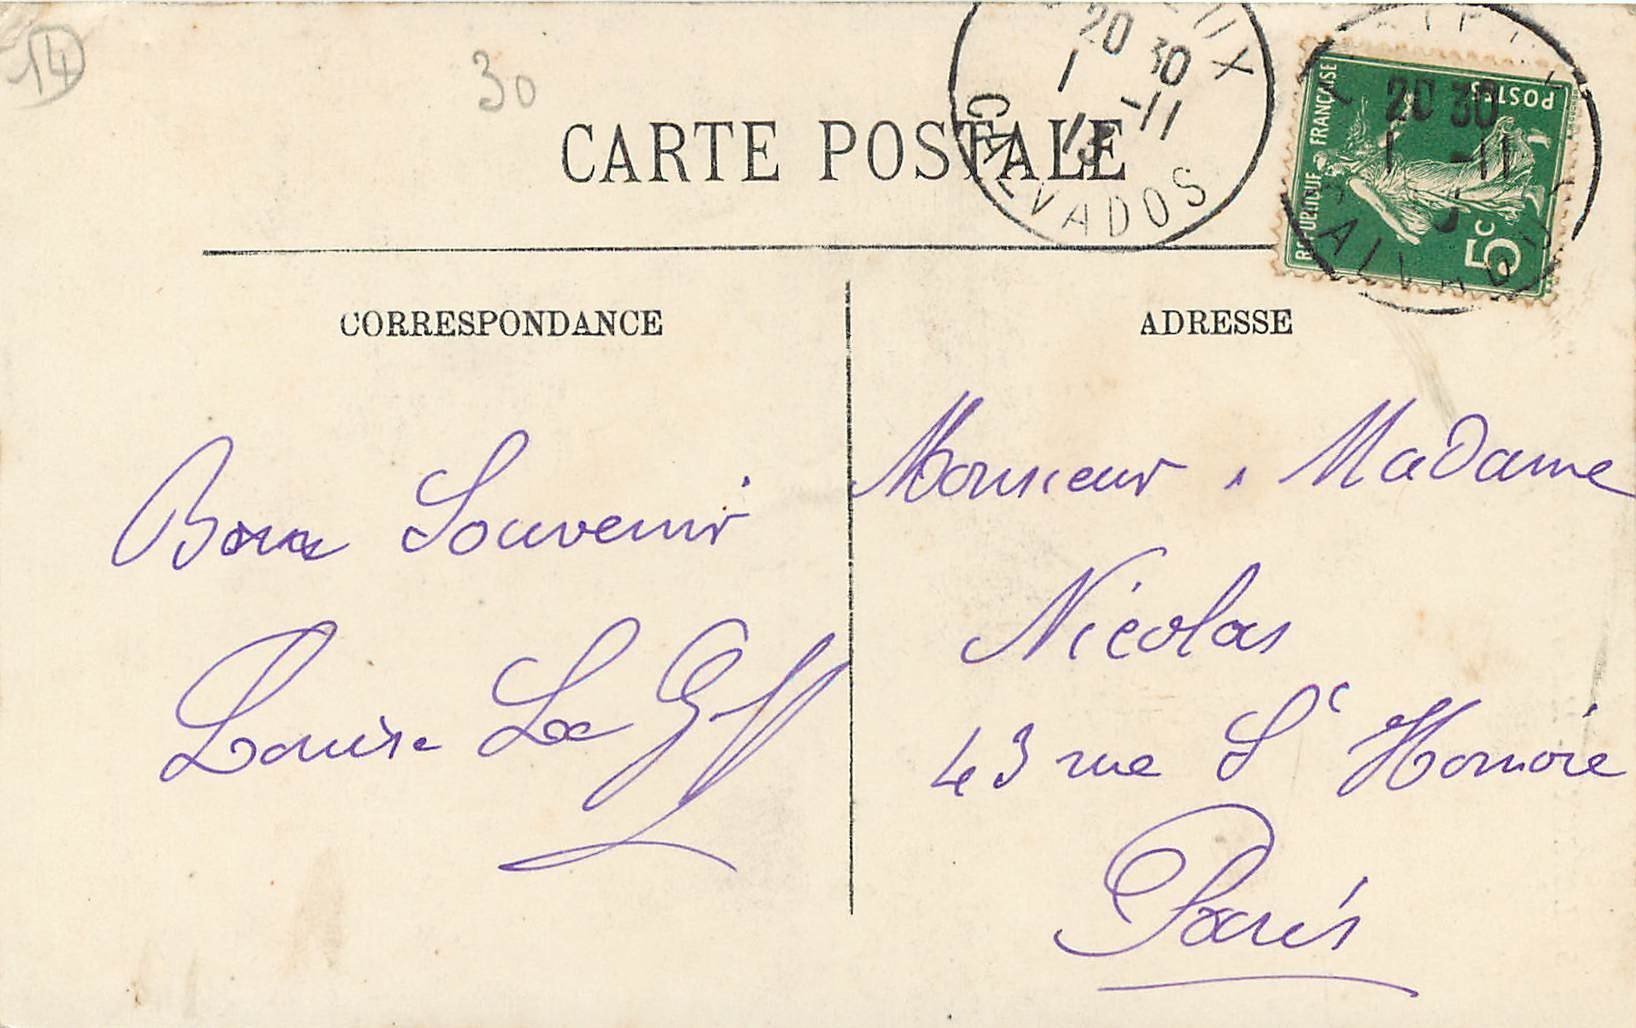 14
30
CARTE POSTALE
20 30
1 -11
13
CALVADOS
REPUBLIQUE FRANÇAISE
POSTES
5c
20 30
1 -11
CALVADOS
CORRESPONDANCE
ADRESSE
Bon Souvenir
Louise Le
Monsieur Madame
Nicolas
43 rue St Honoré
Paris